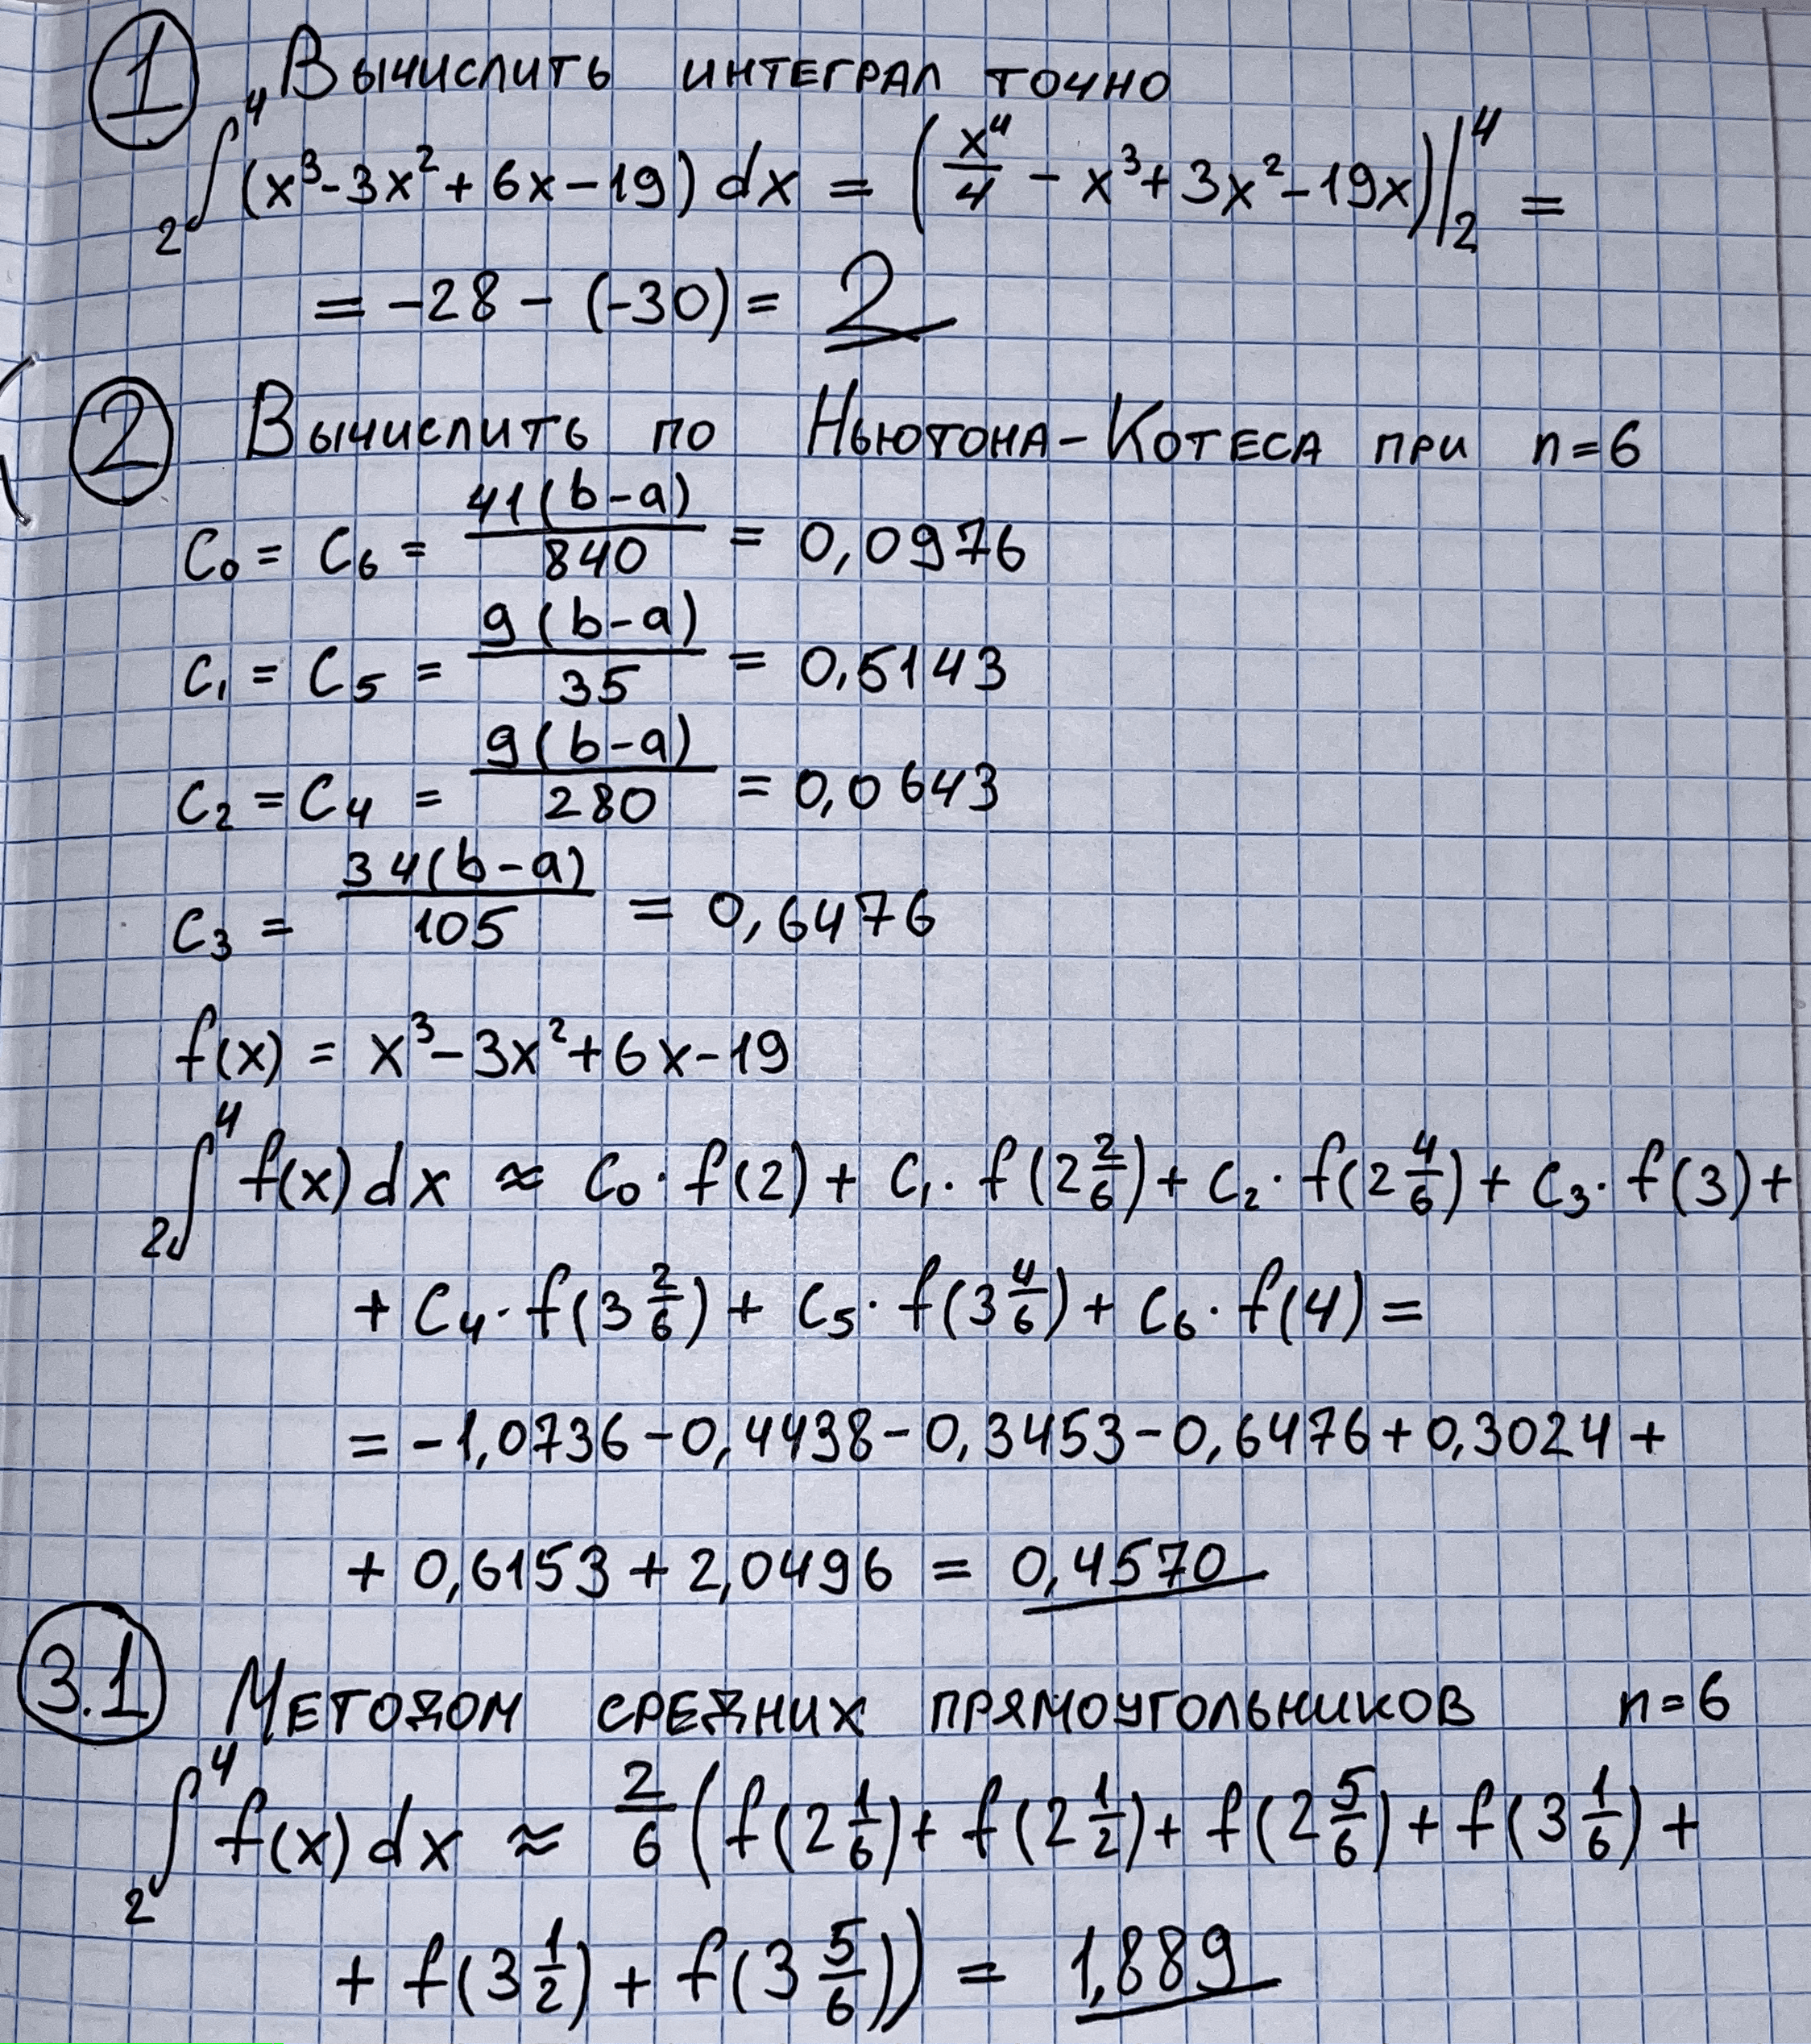 1 Вычислить интеграл точно
₂∫⁴ (x³-3x²+6x-19) dx = (x⁴/4 - x³+3x²-19x)|₂⁴ =
= -28 - (-30) = 2
2 Вычислить по Ньютона-Котеса при n=6
C₀ = C₆ = 41(b-a)/840 = 0,0976
C₁ = C₅ = 9(b-a)/35 = 0,5143
C₂ = C₄ = 9(b-a)/280 = 0,0643
C₃ = 34(b-a)/105 = 0,6476
f(x) = x³-3x²+6x-19
₂∫⁴ f(x)dx ≈ C₀·f(2) + C₁·f(2 2/6) + C₂·f(2 4/6) + C₃·f(3) +
+ C₄·f(3 2/6) + C₅·f(3 4/6) + C₆·f(4) =
= -1,0736-0,4438-0,3453-0,6476+0,3024+
+ 0,6153+2,0496 = 0,4570
3.1 Методом средних прямоугольников n=6
₂∫⁴ f(x)dx ≈ 2/6 (f(2 1/6)+ f(2 1/2)+ f(2 5/6) + f(3 1/6) +
+ f(3 1/2) + f(3 5/6)) = 1,889